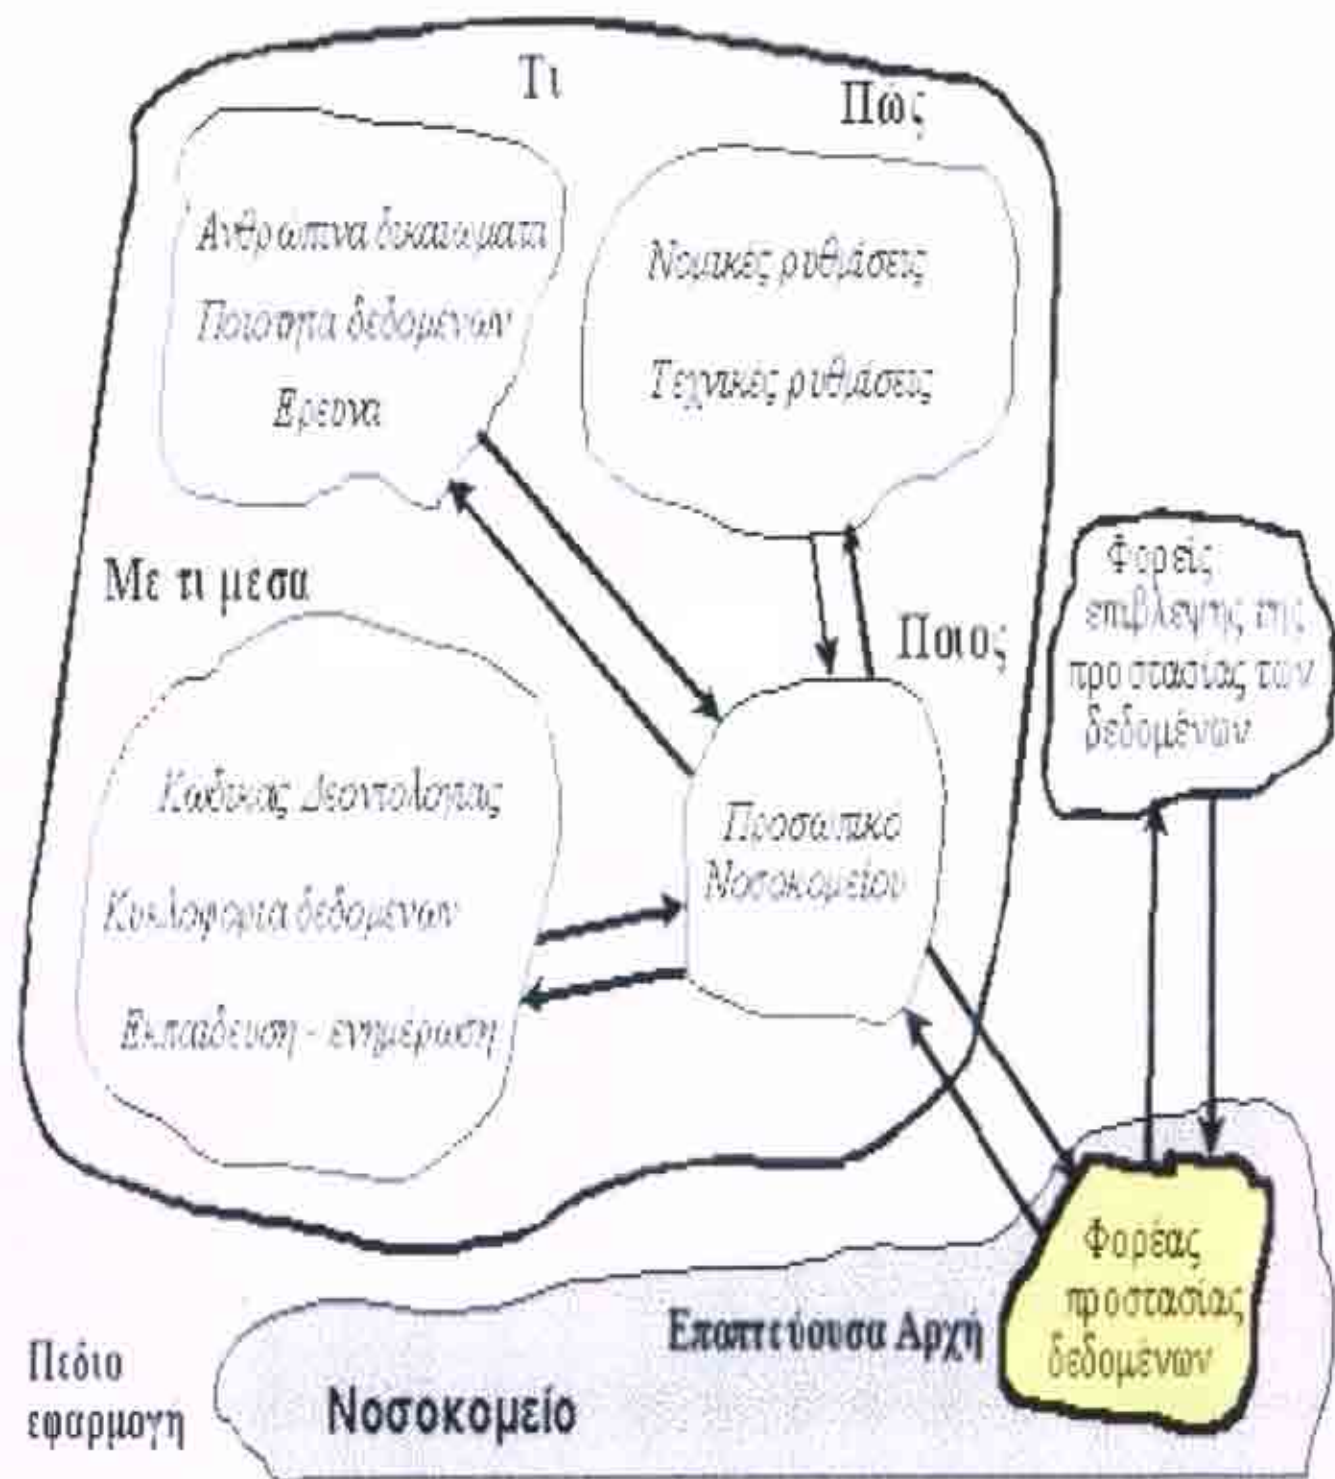 Τι
Πώς
Ανθρώπινα δικαιώματα
Ποιότητα δεδομένων
Ερευνα
Νομικές ρυθμίσεις
Τεχνικές ρυθμίσεις
Με τι μέσα
Ποιος
Κώδικας Δεοντολογίας
Κυκλοφορία δεδομένων
Εκπαίδευση - ενημέρωση
Προσωπικό
Νοσοκομείου
Φορείς
επιβλεψης της
προστασίας των
δεδομένων
Φορέας
προστασίας
δεδομένων
Εποπτεύουσα Αρχή
Πεδίο
εφαρμογη
Νοσοκομείο